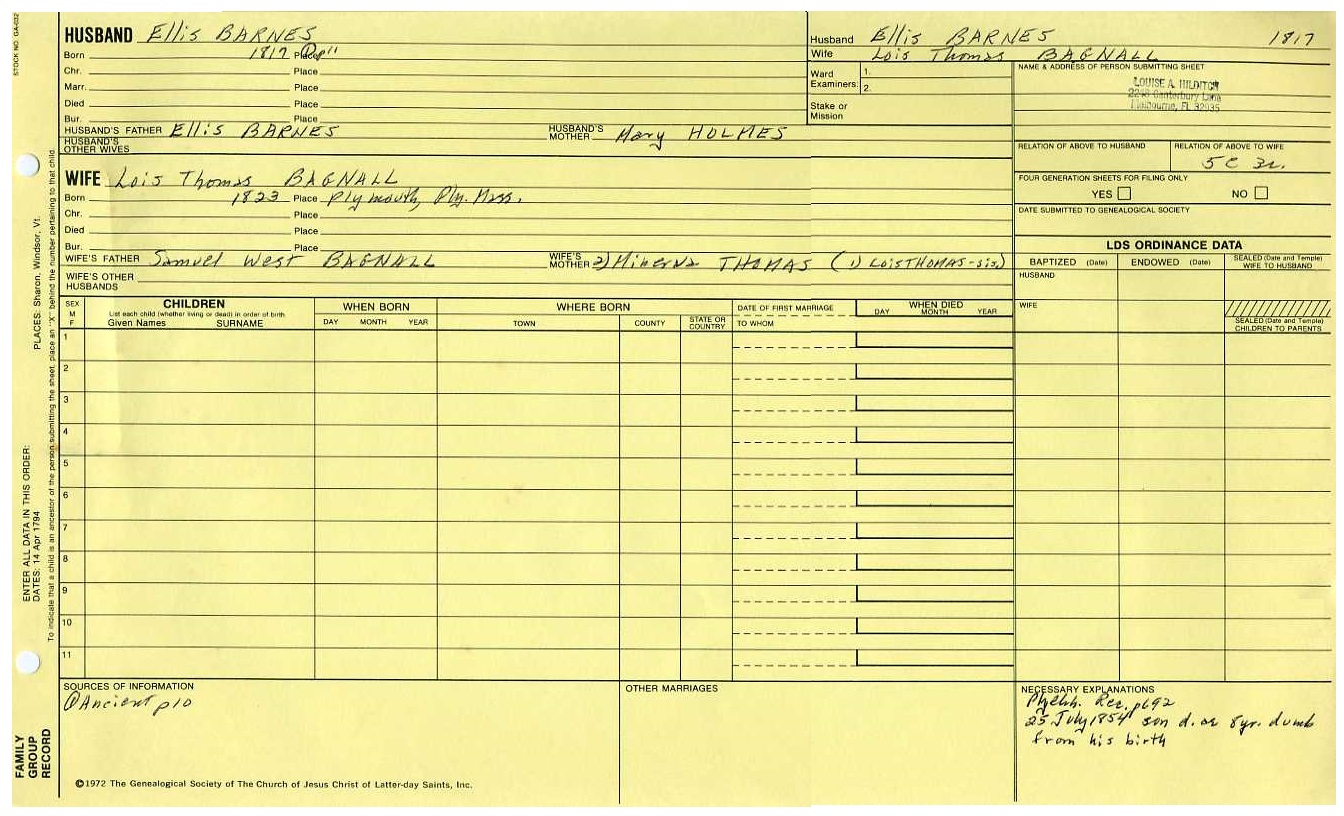 STOCK NO. GA-032
HUSBAND Ellis BARNES
Born 1817 Place ① p11
Chr. Place
Marr. Place
Died Place
Bur. Place
HUSBAND'S FATHER Ellis BARNES HUSBAND'S MOTHER Mary HOLMES
HUSBAND'S OTHER WIVES
WIFE Lois Thomas BAGNALL
Born 1823 Place Plymouth, Ply. Mass.
Chr. Place
Died Place
Bur. Place
WIFE'S FATHER Samuel West BAGNALL WIFE'S MOTHER 2) Minerva THOMAS (1) Lois THOMAS - sis.)
WIFE'S OTHER HUSBANDS
Husband Ellis BARNES 1817
Wife Lois Thomas BAGNALL
Ward Examiners: 1.
2.
Stake or Mission
NAME & ADDRESS OF PERSON SUBMITTING SHEET
LOUISE A. HILDITCH
2248 Canterbury Lane
Melbourne, FL 32935
RELATION OF ABOVE TO HUSBAND RELATION OF ABOVE TO WIFE
5C 3r.
FOUR GENERATION SHEETS FOR FILING ONLY
YES NO
DATE SUBMITTED TO GENEALOGICAL SOCIETY
LDS ORDINANCE DATA
BAPTIZED (Date) ENDOWED (Date) SEALED (Date and Temple) WIFE TO HUSBAND
HUSBAND
WIFE
SEALED (Date and Temple) CHILDREN TO PARENTS
SEX M F
CHILDREN
List each child (whether living or dead) in order of birth
Given Names SURNAME
WHEN BORN
DAY MONTH YEAR
WHERE BORN
TOWN COUNTY STATE OR COUNTRY
DATE OF FIRST MARRIAGE
TO WHOM
WHEN DIED
DAY MONTH YEAR
1
2
3
4
5
6
7
8
9
10
11
SOURCES OF INFORMATION
① Ancient p10
OTHER MARRIAGES
NECESSARY EXPLANATIONS
Plychh. Rec. p692
25 July 1854 son d. ae 8yr. dumb
from his birth
©1972 The Genealogical Society of The Church of Jesus Christ of Latter-day Saints, Inc.
FAMILY GROUP RECORD
ENTER ALL DATA IN THIS ORDER:
DATES: 14 Apr 1794
PLACES: Sharon, Windsor, Vt.
To indicate that a child is an ancestor of the person submitting the sheet, place an "X" behind the number pertaining to that child.